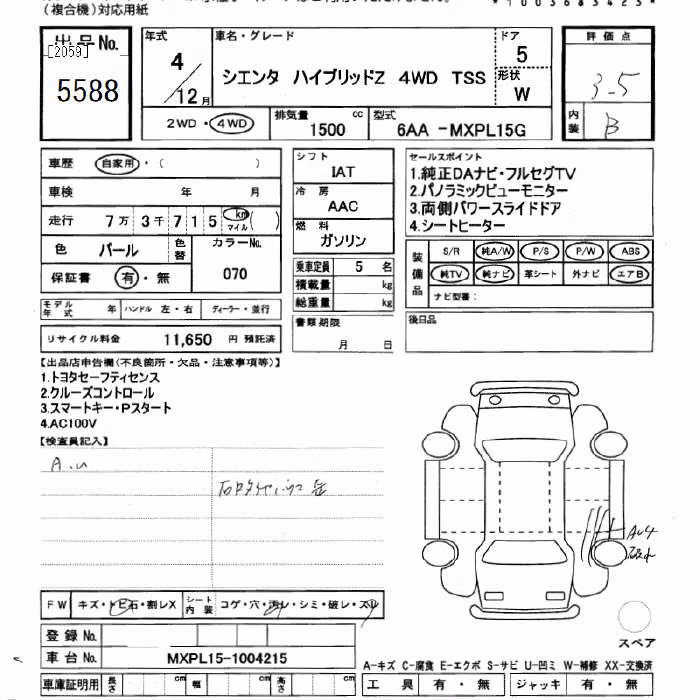 (複合機)対応用紙
出品No.
[2059]
5588
年式 車名・グレード ドア
4/12月 シエンタ ハイブリッドZ 4WD TSS 5
形状 W
2WD・4WD 排気量 1500 cc 型式 6AA -MXPL15G
評価点
3.5
内装 B
車歴 自家用・( )
車検 年 月
走行 7万 3千 7 1 5 km マイル ( )
色 パール 色替 カラーNo. 070
保証書 有・無
モデル年式 年 ハンドル 左・右 ディーラー・並行
リサイクル料金 11,650 円 預託済
シフト
IAT
冷房
AAC
燃料
ガソリン
乗車定員 5 名
積載量 kg
総重量 kg
書類期限
月 日
セールスポイント
1.純正DAナビ・フルセグTV
2.パノラミックビューモニター
3.両側パワースライドドア
4.シートヒーター
装備品 S/R 純A/W P/S P/W ABS
純TV 純ナビ 革シート 外ナビ エアB
ナビ型番:
後日品
【出品店申告欄(不良箇所・欠品・注意事項等)】
1.トヨタセーフティセンス
2.クルーズコントロール
3.スマートキー・Pスタート
4.AC100V
【検査員記入】
A.U
AU4
FW キズ・トビ石・割レX シート内装 コゲ・穴・汚レ・シミ・破レ・スレ
登録No.
車台No. MXPL15-1004215
車庫証明用 長さ cm 幅 cm 高さ cm
スペア
A-キズ C-腐食 E-エクボ S-サビ U-凹ミ W-補修 XX-交換済
工具 有・無 ジャッキ 有・無